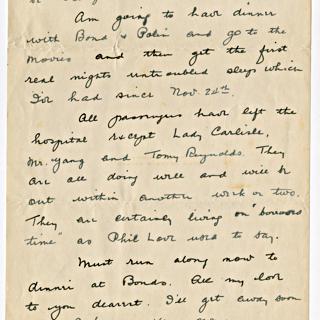 Am going to have dinner
with Bond & Polei and go to the
movies and then get the first
real nights untroubled sleep which
I've had since Nov. 24th.
All passengers have left the
hospital except Lady Carlisle,
Mr. Yang and Tomy Reynolds. They
are all doing well and will be
out within another week or two.
They are certainly living on "borrowed
time" as Phil Love used to say.
Must run along now to
dinner at Bonds. All my love
to you dearest. I'll get away soon